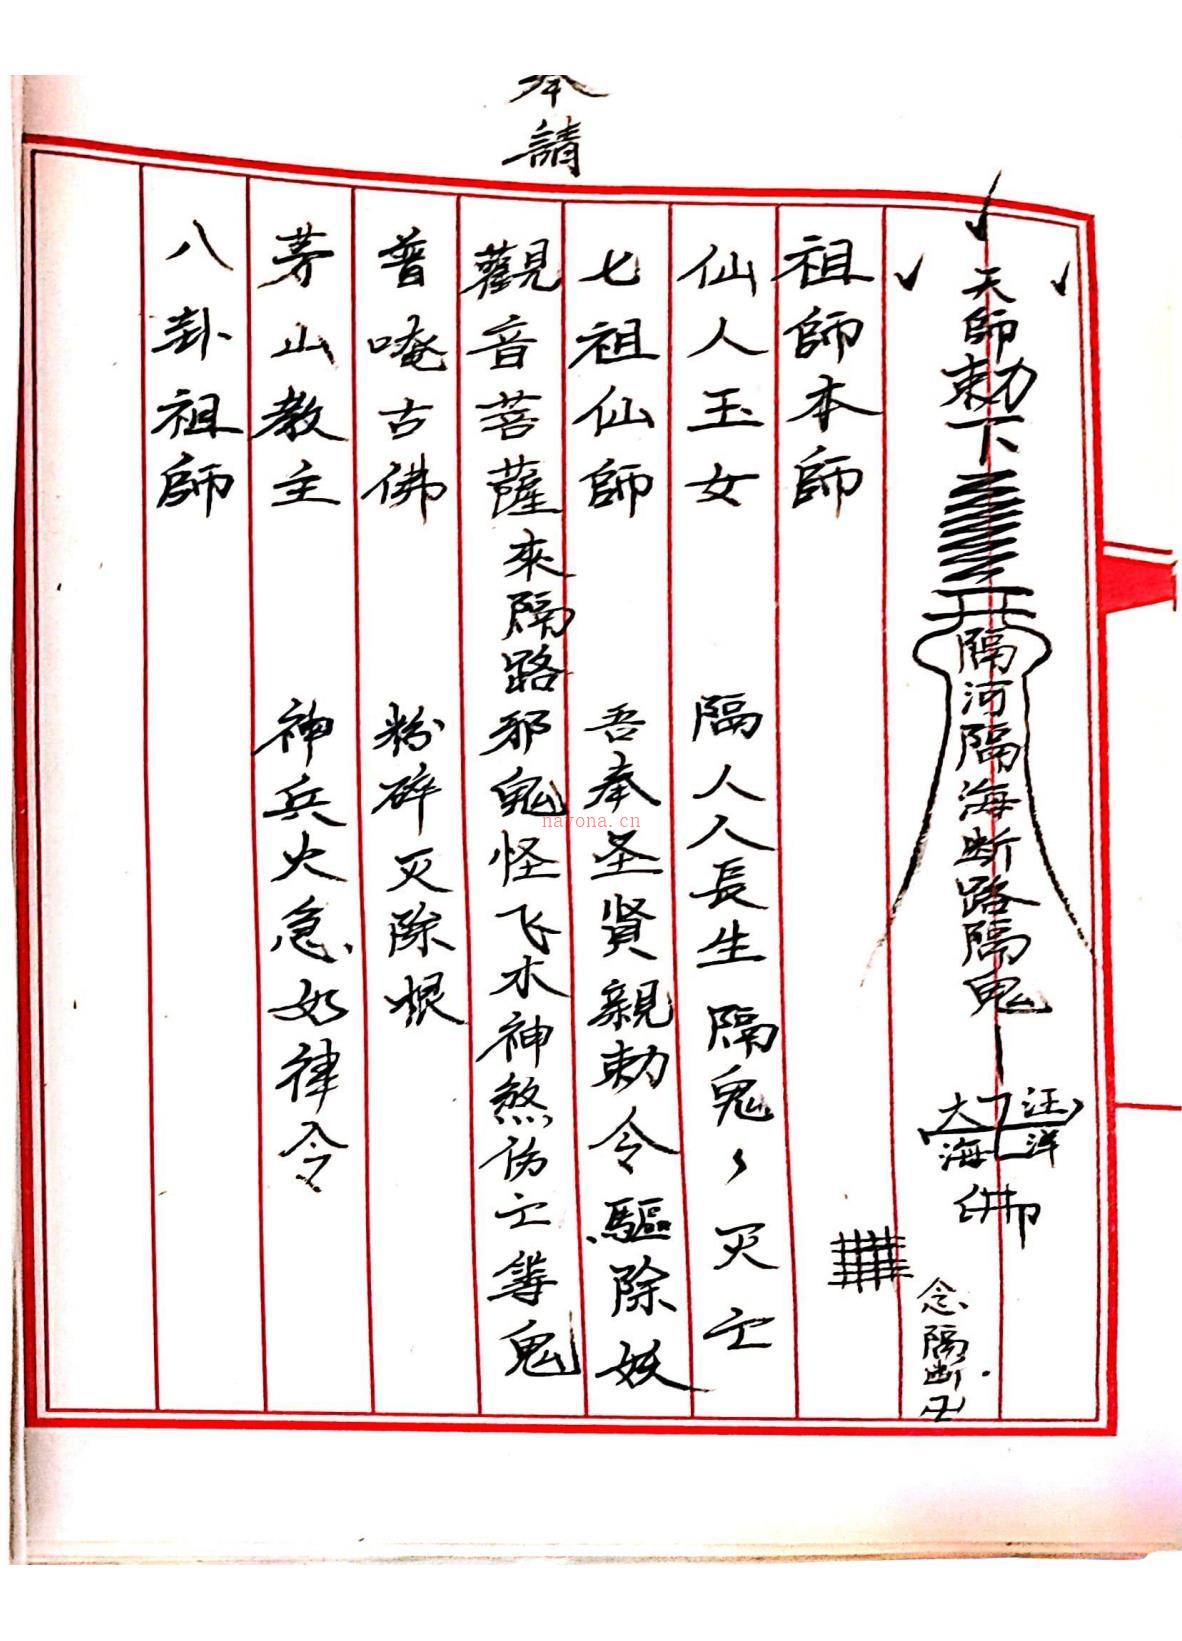 奉請
天師勅下
隔河隔海断路隔鬼
大海汪洋
佛印
念隔断卍
祖師本師
仙人玉女 隔人人長生隔鬼〻灭亡
七祖仙師 吾奉圣賢親勅令驅除妖
觀音菩薩來隔路邪鬼怪飞水神煞伤亡等鬼
普唵古佛 粉碎灭除根
茅山教主 神兵火急如律令
八卦祖師
nayona.cn